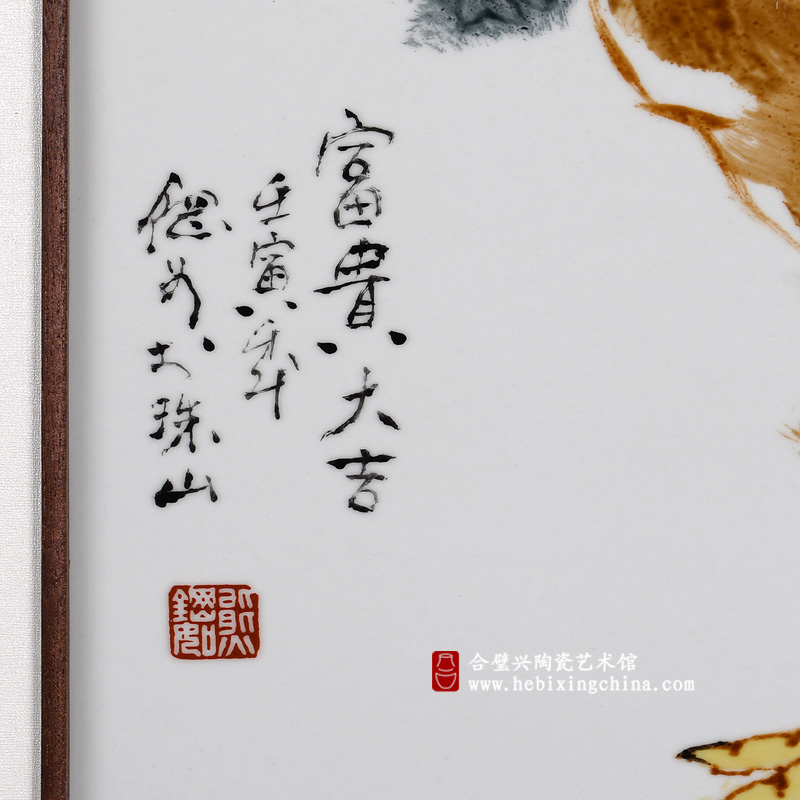 富貴大吉
壬寅秊
鋼如 珠山
熊鋼如
合璧兴陶瓷艺术馆
www.hebixingchina.com